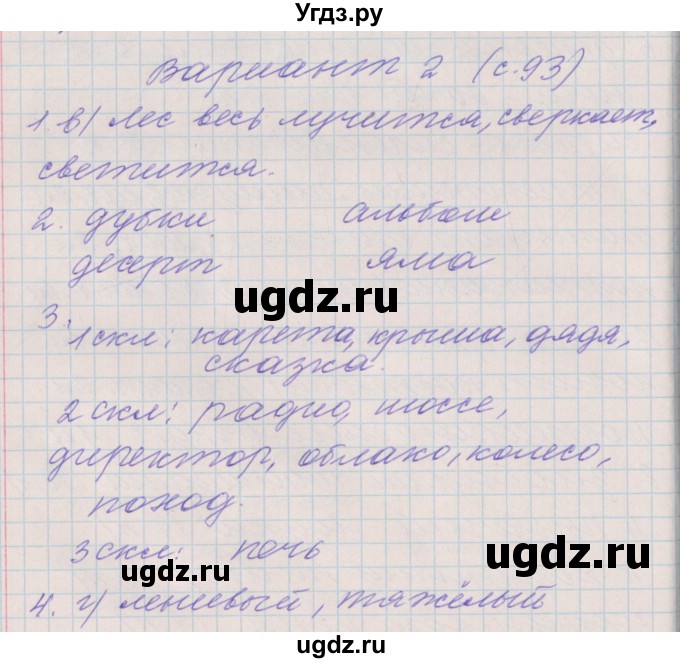 Угдз.ру
Вариант 2 (с.93)
1. в) Лес весь лучится, сверкает,
светится.
2. дубки альбом
десерт яма
ugdz.ru
3.
1 скл: карета, крыша, дядя,
сказка.
2 скл: радио, шоссе,
директор, облако, колесо,
поход.
3 скл: ночь
ugdz.ru
ugdz.ru
4. г) плиевый, тяжёлый
ugdz.ru